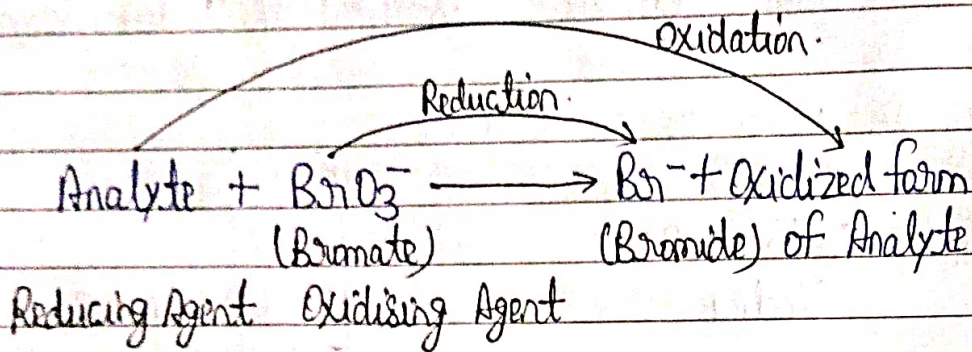 Oxidation.
Reduction.
Analyte + BrO₃⁻ → Br⁻ + Oxidized form
(Bromate) (Bromide) of Analyte
Reducing Agent Oxidising Agent